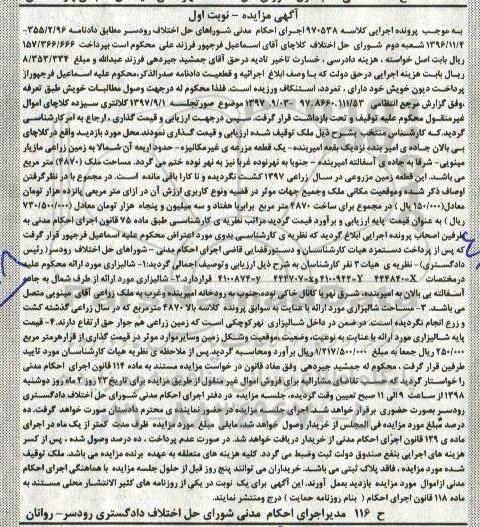 آگهی مزایده - نوبت اول
به موجب پرونده اجرایی کلاسه ۹۷۰۵۳۸ اجرای احکام مدنی شوراهای حل اختلاف رودسر مطابق دادنامه ۳۵۵/۲/۹۶-
۱۳۹۶/۱۱/۴ شعبه دوم شورای حل اختلاف کلاچای آقای اسماعیل فرجپور فرزند علی محکوم است بپرداخت ۱۵۷/۳۶۶/۶۶۶
ریال بابت اصل خواسته، هزینه دادرسی، خسارت تاخیر تادیه درحق آقای جمشید جیردهی فرزند عبدالله و مبلغ ۸/۳۵۳/۳۳۴
ریال بابت هزینه اجرایی درحق دولت که با وصف ابلاغ اجرائیه و قطعیت دادنامه صدرالذکر، محکوم علیه اسماعیل فرجپور از
پرداخت دیون خویش خود داری، تمرد، استنکاف ورزیده است. فلذا محکوم له درجهت وصول مطالبات خویش طبق تعرفه
وفق گزارش مرجع انتظامی ۹۷۰۸۶۶۰۰۱۱۱/۵۳-۱۳۹۷/۰۹/۰۳ موضوع صورتجلسه ۱۳۹۷/۹/۱ کلانتری سیزده کلاچای اموال
غیرمنقول محکوم علیه توقیف و تحت بازداشت قرار گرفت. سپس درجهت ارزیابی و قیمت گذاری، ارجاع به امر کارشناسی
گردید. که کارشناس منتخب به شرح ذیل ملک توقیف شده ارزیابی و قیمت گذاری نمودند. محل مورد بازدید واقع در کلاچای
بی بالان جاده ی امیربنده نزدیک بقعه امیربنده- یک قطعه مزرعه ی غیرمکانیزه- حدود اربعه آن شمالا به زمین زراعی مازیار
مینویی- شرقا به جاده ی آسفالته امیربنده- جنوبا به نهر توده غربا نیز به نهر توده ختم می گردد. مساحت ملک (۴۸۷۰) متر مربع
می باشد. این قطعه زمین مزروعی در سال زراعی ۱۳۹۷ کشت نگردیده و تا کارا باقی مانده است. در مجموع با در نظر گرفتن
اوصاف ذکر شده وموقعیت مکانی ملک وجمیع جهات موثر در قضیه ونوع کاربری ارزش آن در ازای متر مربعی پانزده هزار تومان
معادل(۱۵۰/۰۰۰ ریال) در مجموع برای ساخت ۴۸۷۰ متر مربع برابربا هفتاد و سه میلیون و پنجاه هزار تومان معادل (۷۳۰/۵۰۰/۰۰۰
ریال) به عنوان قیمت پایه ارزیابی و برآورد قیمت گردید مراتب نظریه ی کارشناسی طبق ماده ۷۵ قانون اجرای احکام مدنی به
طرفین اصحاب پرونده اجرایی ابلاغ گردید که نظریه ی کارشناسی بدوی مورد اعتراض محکوم علیه اسماعیل فرجپور قرار گرفت
که پس از پرداخت دستمزد هیات کارشناسان و دستور قضایی قاضی اجرای احکام مدنی - شوراهای حل اختلاف رودسر( رئیس
دادگستری)- نظریه ی هیات ۳ نفر کارشناسان به شرح ذیل ارزیابی وتوصیف اجمالی گردید:۱- شالیزاری مورد ارائه محکوم علیه
قراردارد.۲- شالیزاری مورد ارائه از طرف شمال به جاده
آسفالته بی بالان به امیربنده، شرق نهر یا کانال خاکی توده، جنوب به رودخانه امیربنده وغرب به ملک زراعی آقای مینویی متصل
می باشد. ۳- مساحت شالیزاری مورد ارائه با عنایت به سوابق پرونده کلاسه بالا ۴۸۷۰ مترمربع که در سال زراعی گذشته کشت
و زرع انجام نگردیده است. در ضمن در داخل شالیزاری نهر کوچکی است که زمین زراعی هم جوار حق ارتفاع دارند.۴- قیمت
پایه شالیزاری مورد ارائه با عنایت به نوعیت، وضعیت، موقعیت وشکل زمین وسایر موارد موثر در قیمت گذاری از قرار هر متر مربع
۲۵۰/۰۰۰ ریال جمعا به مبلغ ۱/۲۱۷/۵۰۰/۰۰۰ ریال برآورد ومحاسبه گردید. پس از ملاحظه ی نظریه هیات کارشناسان مورد تایید
طرفین قرار گرفت، محکوم له جمشید جیردهی وفق مفاد قانون در خواست مزایده مستند به ماده ۱۱۴ قانون اجرای احکام مدنی
را خواستار گردید. لذا مراتب تقاضای مشارالیه برای فروش اموال غیر منقول از طریق مزایده برای تاریخ ۲۳ روز ۲ ماه روز دوشنبه
۱۳۹۸ از ساعت ۹ الی ۱۱ صبح تعیین وقت گردیده، جلسه مزایده در دفتر اجرای احکام مدنی شورای حل اختلاف دادگستری
رودسر بصورت حضوری برقرار خواهد شد. اجرای جلسه مزایده در حضور نماینده ی محترم دادستان صورت خواهد گرفت. ده
درصد مبلغ مورد مزایده فی المجلس از خریدار وصول خواهد شد. مابقی مبلغ مورد مزایده ظرف مدت کمتر از یک ماه در اجرای
ماده ی ۱۲۹ قانون اجرای احکام مدنی از خریدار دریافت خواهد شد. در صورت عدم پرداخت، ده درصد وصول شده، پس از کسر
هزینه های اجرایی بنفع صندوق دولت ثبت وضبط می گردد. کلیه هزینه های متعلقه به عهده برنده مزایده می باشد. ملک توقیف
شده مورد مزایده، فاقد پلاک ثبتی می باشد. خریداران می توانند پنج روز قبل از حلول جلسه مزایده با هماهنگی اجرای احکام
مدنی ازاموال مورد مزایده بازدید بعمل آورند. این آگهی برای یک نوبت در یکی از روزنامه های کثیر الانتشار محلی مستند به
ماده ۱۱۸ قانون اجرای احکام ( بنام روزنامه حمایت ) درج ومنتشر نمایند.
ح ۱۱۶ مدیراجرای احکام مدنی شورای حل اختلاف دادگستری رودسر- روانان